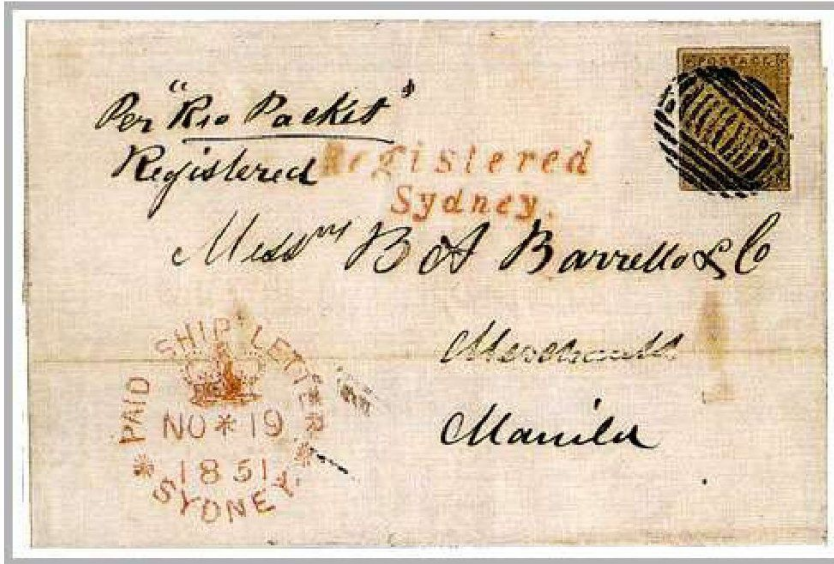 POSTAGE
Per "Rio Packet"
Registered
Registered
Sydney.
Messrs B A Barretto & Co
Merchants
Manila
PAID SHIP LETTER
NO * 19
1851
* SYDNEY. *